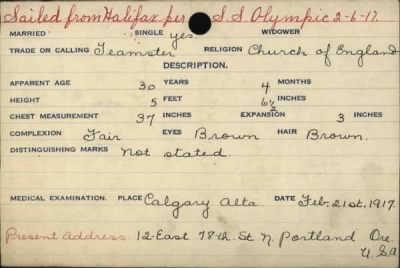 Sailed from Halifax per S.S. Olympic 2-6-17.
MARRIED SINGLE yes WIDOWER
TRADE OR CALLING Teamster RELIGION Church of England
DESCRIPTION.
APPARENT AGE 30 YEARS 4 MONTHS
HEIGHT 5 FEET 6½ INCHES
CHEST MEASUREMENT 37 INCHES EXPANSION 3 INCHES
COMPLEXION Fair EYES Brown HAIR Brown.
DISTINGUISHING MARKS Not stated.
MEDICAL EXAMINATION. PLACE Calgary Alta. DATE Feb. 21st. 1917.
Present Address 12 East 78th. St N. Portland Ore.
U.S.A